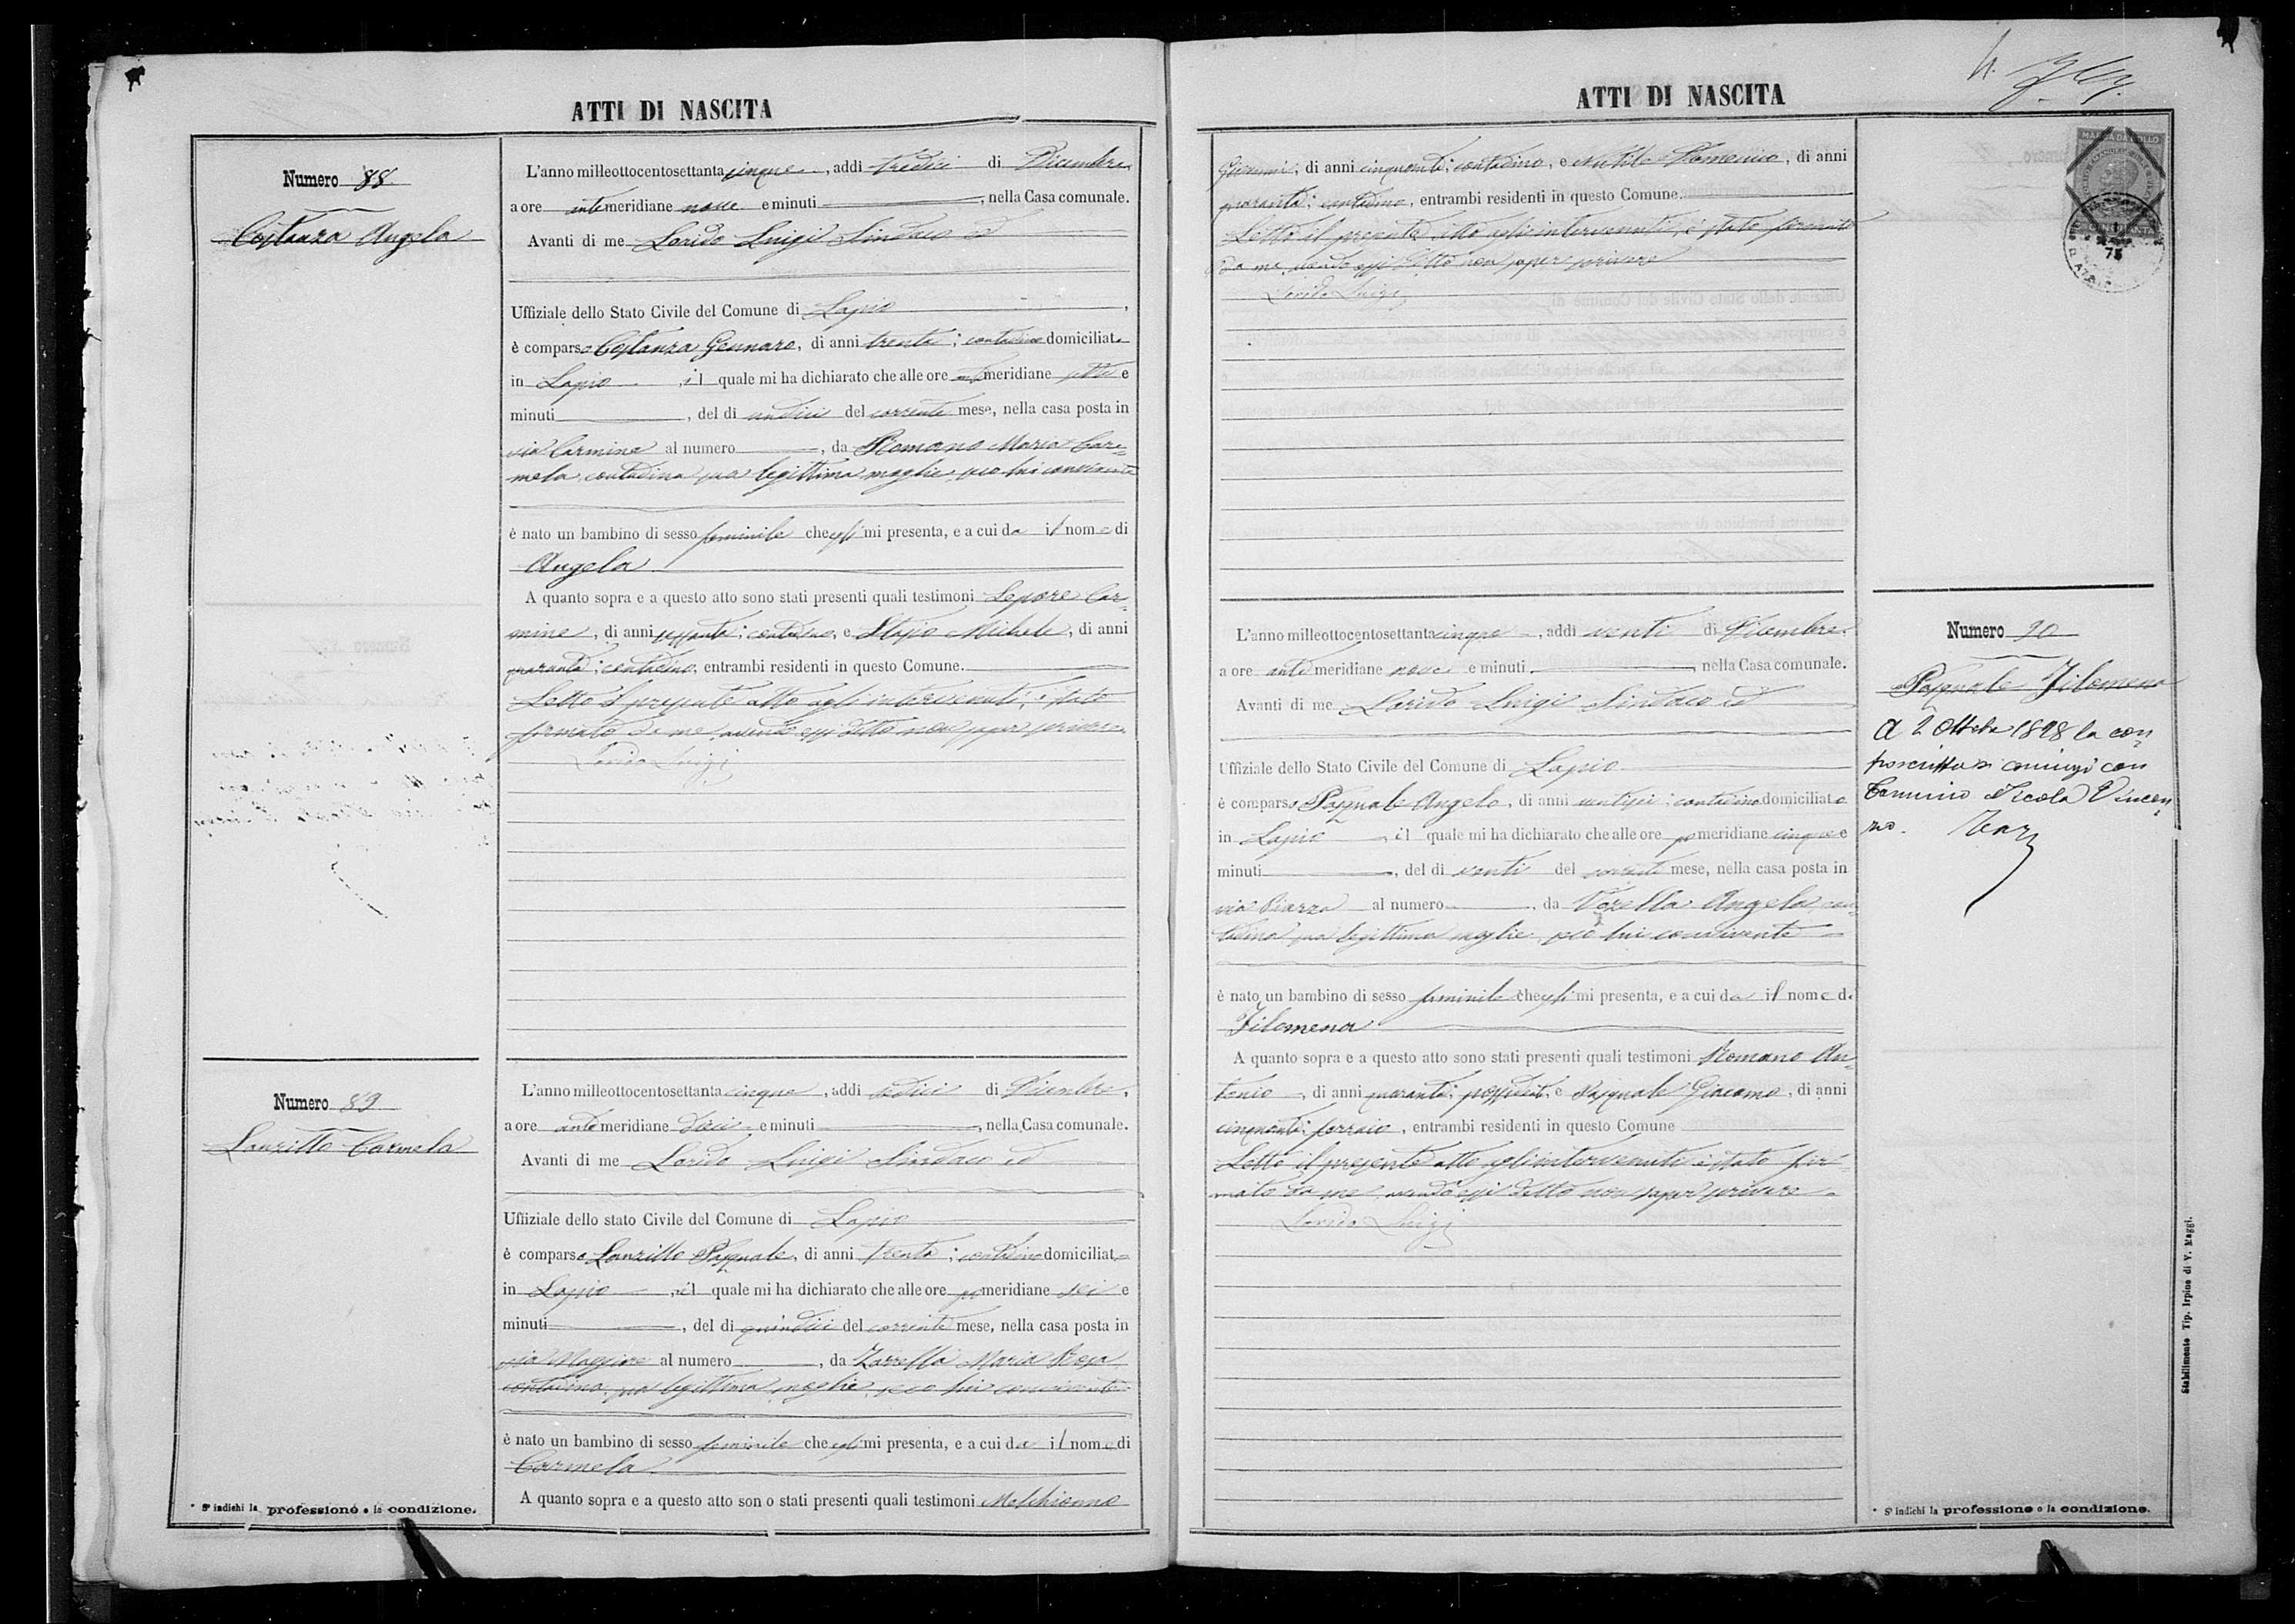 ATTI DI NASCITA
Numero 88
Costanza Angela
L'anno milleottocentosettanta cinque, addì tredici di Dicembre
a ore ante meridiane nove e minuti, nella Casa comunale.
Avanti di me Lorido Luigi Sindaco ed
Uffiziale dello Stato Civile del Comune di Lapio,
è comparso Costanza Gennaro, di anni trenta; contadino domiciliato
in Lapio, il quale mi ha dichiarato che alle ore ant meridiane sette e
minuti, del dì undici del corrente mese, nella casa posta in
via Carmine al numero, da Romano Maria Car=
mela contadina sua legittima moglie, seco lui convivente
è nato un bambino di sesso feminile che egli mi presenta, e a cui da il nome di
Angela
A quanto sopra e a questo atto sono stati presenti quali testimoni Lepore Car=
mine, di anni sessanta; contadino, e Stasio Michele, di anni
quaranta; contadino, entrambi residenti in questo Comune.
Letto il presente atto agli intervenuti, è stato
firmato da me, avendo essi detto non saper scrivere
Lorido Luigi
Numero 89
Lanzillo Carmela
L'anno milleottocentosettanta cinque, addì sedici di Dicembre,
a ore ante meridiane dieci e minuti, nella Casa comunale.
Avanti di me Lorido Luigi Sindaco ed
Uffiziale dello stato Civile del Comune di Lapio
è comparso Lanzillo Pasquale, di anni trenta; contadino domiciliato
in Lapio, il quale mi ha dichiarato che alle ore po meridiane sei e
minuti, del dì quindici del corrente mese, nella casa posta in
via Maggiore al numero, da Zarrella Maria Rosa
contadina, sua legittima moglie, seco lui convivente
è nato un bambino di sesso feminile che egli mi presenta, e a cui da il nome di
Carmela
A quanto sopra e a questo atto son o stati presenti quali testimoni Melchionno
* Si indichi la professione o la condizione.
ATTI DI NASCITA
MARCA DA BOLLO
75
Giovanni, di anni cinquanta; contadino, e Domenico, di anni
quaranta; contadino, entrambi residenti in questo Comune.
Letto il presente atto agli intervenuti, è stato firmato
da me, avendo essi detto non saper scrivere
Lorido Luigi
Numero 90
Pasquale Filomena
A 2 Ottobre 1898 la con
troscritta si coniugò con
Carmino Nicola Vincen
zo.
L'anno milleottocentosettanta cinque, addì venti di Dicembre
a ore ante meridiane nove e minuti, nella Casa comunale.
Avanti di me Lorido Luigi Sindaco ed
Uffiziale dello Stato Civile del Comune di Lapio
è comparso Pasquale Angelo, di anni ventisei; contadino domiciliato
in Lapio, il quale mi ha dichiarato che alle ore po meridiane cinque e
minuti, del dì venti del corrente mese, nella casa posta in
via Piazza al numero, da Vozella Angela, con=
tadina sua legittima moglie, seco lui convivente
è nato un bambino di sesso feminile che egli mi presenta, e a cui da il nome di
Filomena
A quanto sopra e a questo atto sono stati presenti quali testimoni Romano An=
tonio, di anni quaranta; possidente, e Pasquale Giacomo, di anni
cinquanta; ferraio, entrambi residenti in questo Comune
Letto il presente atto agli intervenuti è stato fir=
mato da me, avendo essi detto non saper scrivere
Lorido Luigi
* Si indichi la professione o la condizione.
Stabilimento Tip. Irpino di V. Maggi.